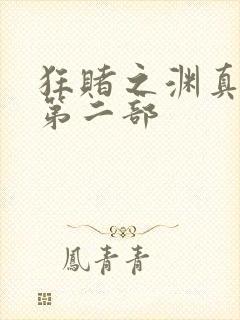 狂赌之渊真
第二部
鳳青青